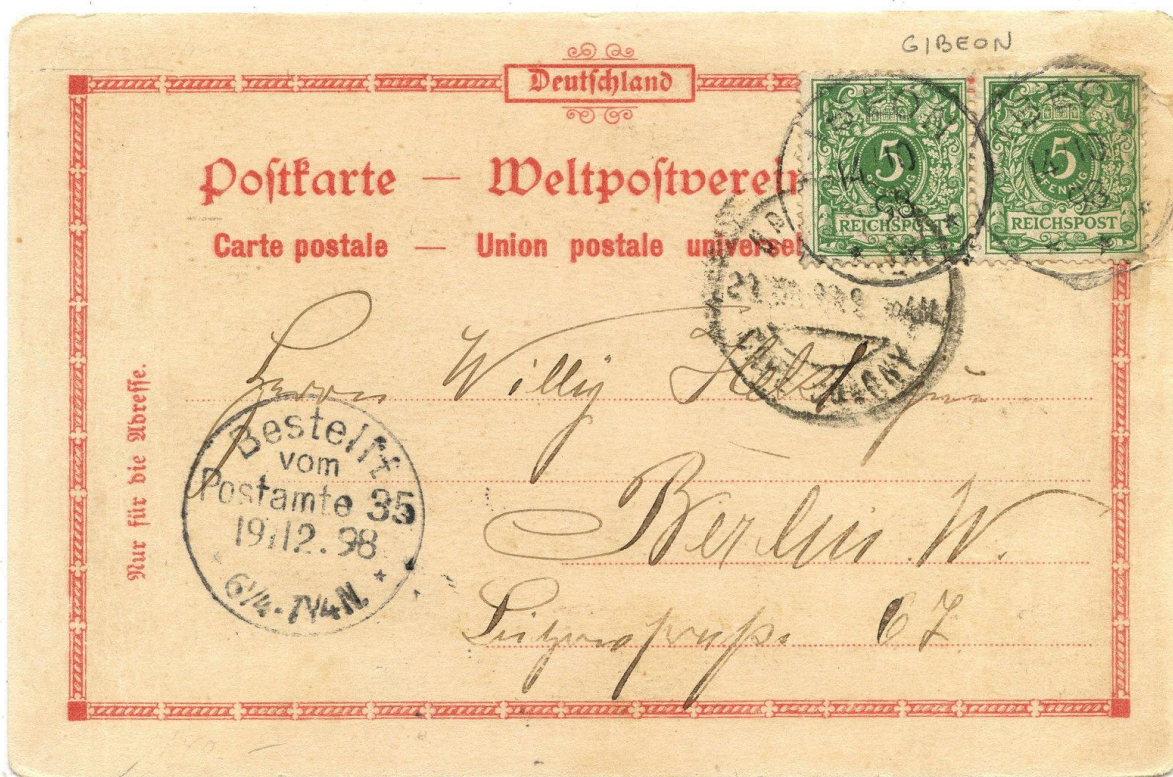 GIBEON
Deutschland
Postkarte — Weltpostverein
Carte postale — Union postale universel
5
PFENNIG
REICHSPOST
5
PFENNIG
REICHSPOST
GIBEON
14 10
98
GIBEON
14 10
98
CAPE COLONY
Nur für die Adresse.
Herrn Willy
Berlin W.
67
Bestellt
vom
Postamte 35
19.12.98
6¼-7¼N.